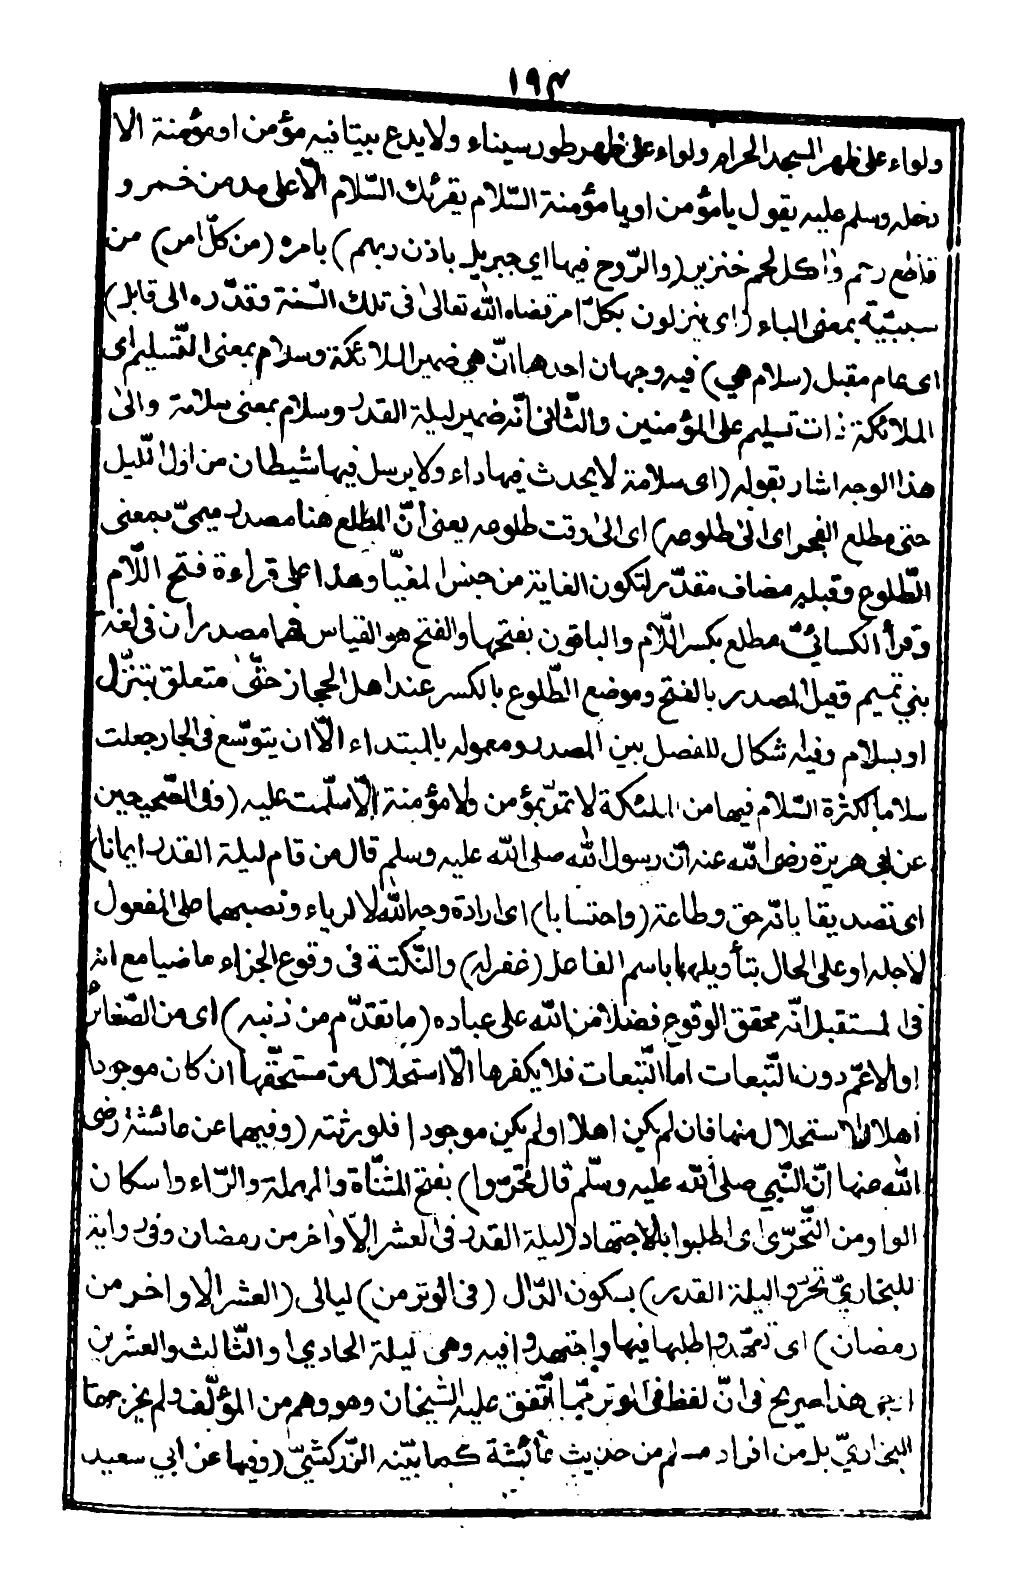 ١٩٤
ولواء على ظهر المسجد الحرام ولواء على ظهر طور سيناء ولا يدع بيتا فيه مؤمن او مؤمنة الا
دخله وسلم عليه يقول يا مؤمن او يا مؤمنة السّلام يقرئك السّلام الّا على مدمن خمر و
قاطع رحم واٰكل لحم خنزير (والرّوح فيها اى جبريل باذن ربهم) بامره (من كلّ امر) من
سببيّة بمعنى الباء (اى ينزلون بكلّ امر قضاه الله تعالىٰ فى تلك السّنة وقدّره الى قابل)
اى عام مقبل (سلام هي) فيه وجهان احدهما انّ هي ضمير الملائكة وسلام بمعنى التّسليم اى
الملائكة ذات تسليم على المؤمنين والثّانى انّه ضمير ليلة القدر وسلام بمعنى سلامة والىٰ
هذا الوجه اشار بقوله (اى سلامة لا يحدث فيها داء ولا يرسل فيها شيطان من اول اللّيل
حتى مطلع الفجر اى الىٰ طلوعه) اى الىٰ وقت طلوعه يعنى أنّ المطلع هنا مصدر ميميّ بمعنى
الطّلوع وقبله مضاف مقدّر لتكون الغاية من جنس المغيّا وهذا على قراءة فتح اللّام
وقرأ الكسائيّ مطلع بكسر اللّام والباقون بفتحها والفتح هو القياس فهما مصدران فى لغة
بني تميم وقيل المصدر بالفتح وموضع الطّلوع بالكسر عند اهل الحجاز حتّىٰ متعلق بتنزّل
او بسلام وفيه اشكال للفصل بين المصدر ومعموله بالمبتداء الّا ان يتوسّع فى الجار جعلت
سلاما لكثرة السّلام فيها من الملئكة لا تمرّ بمؤمن ولا مؤمنة الّا سلّمت عليه (وفى الصّحيحين
عن ابى هريرة رضى الله عنه انّ رسول الله صلى الله عليه وسلم قال من قام ليلة القدر ايمانا)
اى تصديقا بانّه حق وطاعة (واحتسابا) اى ارادة وجه الله لا لرياء ونصبهما على المفعول
لاجله او على الحال بتأويلهما باسم الفاعل (غفر له) والنّكتة فى وقوع الجزاء ماضيا مع انه
فى المستقبل انّه محقق الوقوع فضلا من الله على عباده (ما تقدّم من ذنبه) اى من الصّغائر
او الاعمّ دون التّبعات امّا التّبعات فلا يكفرها الّا استحلال من مستحقّها ان كان موجودا
أهلا للاستحلال منها فان لم يكن اهلا او لم يكن موجودا فلورثته (وفيهما عن عائشة رضى
الله عنها انّ النّبي صلى الله عليه وسلّم قال تحرّوا) بفتح المثنّاة والمهملة والرّاء واسكان
الواو من التّحرّى اى اطلبوا بالاجتهاد (ليلة القدر فى العشر الاواخر من رمضان وفى رواية
للبخاريّ تحرّوا ليلة القدر) بسكون الدّال (فى الوتر من) ليالى (العشر الاواخر من
رمضان) اى تعمّدوا طلبها فيها واجتهدوا فيه وهى ليلة الحادي والثّالث والعشرين
هذا صريح فى انّ لفظ فى الوتر ممّا اتّفق عليه الشّيخان وهو وهم من المؤلّف ولم يخرجها
البخاريّ بل من افراد مسلم من حديث عائشة كما بيّنه الزّركشيّ (وفيها عن ابي سعيد